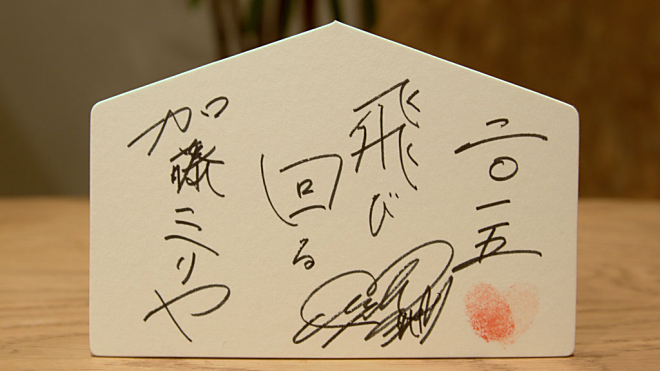 二〇一五
飛び
回る
加藤ミリヤ